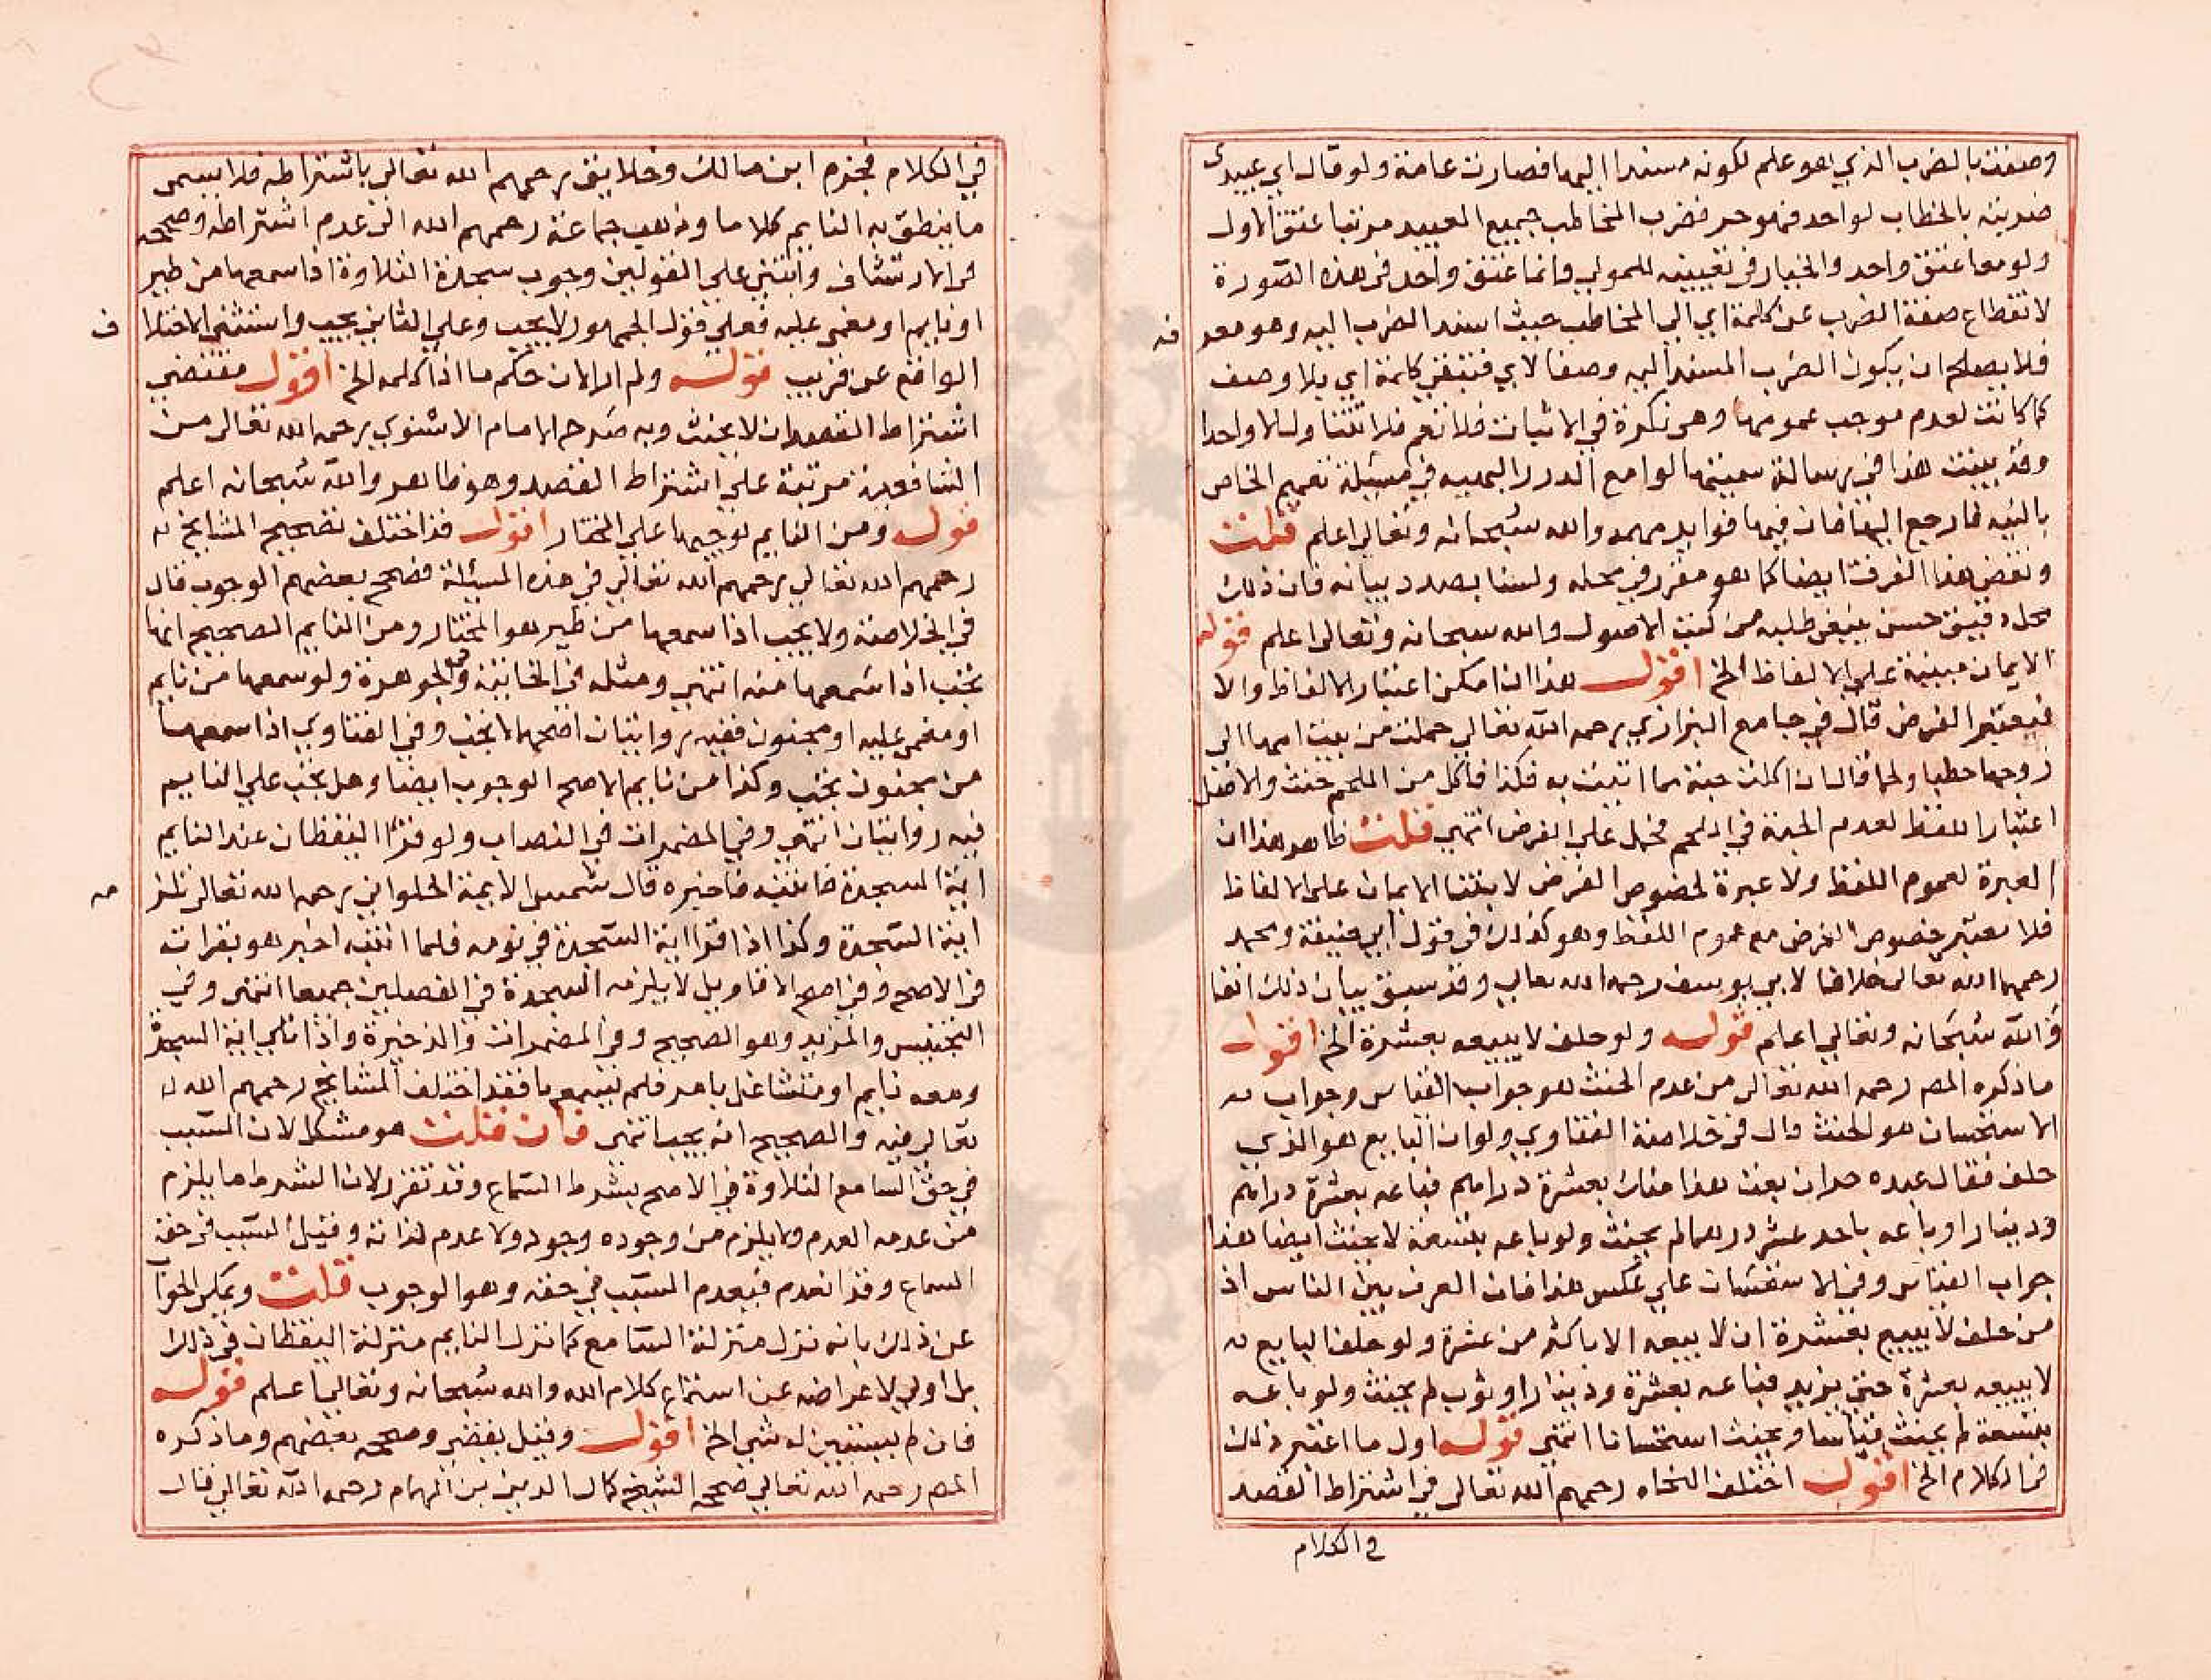 وصفت بالضرب الذي هو علم لكونه مسندا اليها فصارت عامة ولو قال اي عبيدي
ضربته بالخطاب لواحد فهو حر فضرب المخاطب جميع العبيد مرتبا عتق الاول
ولو معا عتق واحد والخيار في تعيينه للمولي وانما عتق واحد في هذه الصورة
لانقطاع صفة الضرب عن كلمة اي الي المخاطب حيث اسند الضرب اليه وهو معد
فلا يصلح ان يكون الضرب المسند اليه وصفا لاي فتبقي كلمة اي بلا وصف
كما كانت لعدم موجب عمومها وهي نكرة في الاثبات فلا تعم فلا تتناول الا واحدا
وقد بينت هذا في رسالة سميتها لوامع الدرر البهيه في مسئلة تعميم الخاص
بالنيه فارجع اليها فان فيها فوايد مهمه والله سبحانه وتعالي اعلم قلت
ونقض هذا الفرق ايضا كما هو مقرر في محله ولسنا بصدد بيانه فان ذلك
محل دقيق حسن ينبغي طلبه من كتب الاصول والله سبحانه وتعالي اعلم قوله
الايمان مبنية علي الالفاظ الخ اقول هذا ان امكن اعتبار الالفاظ والا
فيعتبر الغرض قال في جامع البزازي رحمه الله تعالي حملت من بيت امها الي
زوجها حطبا ولحما فقال ان اكلت حبة مما اتيت به فكذا فاكل من اللحم حنث والاصل
اعتبار اللفظ لعدم الحبة في اللحم فحمل علي الغرض انتهي قلت ظاهر هذا ان
العبرة لعموم اللفظ ولا عبرة لخصوص الغرض لابتنا الايمان علي الالفاظ
فلا يعتبر خصوص الغرض مع عموم اللفظ وهو كذلك في قول ابي حنيفة ومحمد
رحمهما الله تعالي خلافا لابي يوسف رحمه الله تعالي وقد سبق بيان ذلك انفا
والله سبحانه وتعالي اعلم قوله ولو حلف لا يبيعه بعشرة الخ اقول
ما ذكره المص رحمه الله تعالي من عدم الحنث هو جواب القياس وجواب
الاستحسان هو الحنث قال في خلاصة الفتاوي ولو ان البايع هو الذي
حلف فقال عبده حر ان بعت هذا منك بعشرة دراهم فباعه بعشرة دراهم
ودينار او باعه باحد عشر درهما لم يحنث ولو باعه بتسعة لا يحنث ايضا هذا
جواب القياس وفي الاستحسان علي عكس هذا فان العرف بين الناس ان
من حلف لا يبيع بعشرة ان لا يبيعه الا باكثر من عشرة ولو حلف البايع
لا يبيعه بعشرة حتي يزيد فباعه بعشرة ودينار او ثوب لم يحنث ولو باعه
بتسعة لم يحنث قياسا ويحنث استحسانا انتهي قوله اول ما اعتبر ذلك
في الكلام الخ اقول اختلف النحاه رحمهم الله تعالي في اشتراط القصد
في الكلام
في الكلام فجزم ابن مالك وخلايق رحمهم الله تعالي باشتراطه فلا يسمي
ما ينطق به النايم كلاما وذهب جماعة رحمهم الله الي عدم اشتراطه وصححه
في الارتشاف وابتني علي القولين وجوب سجدة التلاوة اذا سمعها من طير
او نايم او مغمي عليه فعلي قول الجمهور لا يجب وعلي الثاني يجب واستثني الاختلا
ف
الواقع عن قريب قوله ولم ار الان حكم ما اذا كلمه الخ اقول مقتضي
اشتراط القصد ان لا يحنث وبه صرح الامام الاسنوي رحمه الله تعالي من
الشافعية مرتبة علي اشتراط القصد وهو ظاهر والله سبحانه اعلم
قوله ومن النايم يوجبها علي المختار اقول قد اختلف تصحيح المشايخ
رحمهم الله تعالي رحمهم الله تعالي في هذه المسئلة فصحح بعضهم الوجوب قال
في الخلاصة ولا يجب اذا سمعها من طير هو المختار ومن النايم الصحيح انها
تجب اذا سمعها منه انتهي ومثله في الخانية وفي الجوهرة ولو سمعها من نايم
او مغمي عليه او مجنون ففيه روايتان اصحهما لا يجب وفي الفتاوي اذا سمعها
من مجنون يجب وكذا من نايم الاصح الوجوب ايضا وهل يجب علي النايم
فيه روايتان انتهي وفي المضمرات في النصاب ولو قرا اليقظان عند النايم
اية السجدة فانتبه فاخبره قال شمس الايمة الحلواني رحمه الله تعالي تلز
مه
اية السجدة وكذا اذا قرا اية السجدة في نومه فلما انتبه اخبر هو بقرات
في الاصح وفي اصح الاقاويل لا يلزمه السجدة في الفصلين جميعا انتهي وفي
التجنيس والمزيد وهو الصحيح وفي المضمرات والذخيرة واذا تلي اية السجدة
ومعه نايم او متشاغل بامر فلم يسمعها فقد اختلف المشايخ رحمهم الله
تعالي فيه والصحيح انه يجب انتهي فان قلت هو مشكل لان السبب
في حق السامع التلاوة في الاصح بشرط السماع وقد تقرر لان الشرط ما يلزم
من عدمه العدم ولا يلزم من وجوده وجود ولا عدم لذاته وقيل السبب في حقه
السماع وقد انعدم فيعدم السبب في حقه وهو الوجوب قلت ويمكن الجواب
عن ذلك بانه نزل منزلة السامع كما نزل النايم منزلة اليقظان في ذلك
بل اولي لاعراضه عن استماع كلام الله والله سبحانه وتعالي اعلم قوله
فان لم يستبين له شي الخ اقول وقيل يقضي وصححه بعضهم وما ذكره
المص رحمه الله تعالي صححه الشيخ كمال الدين بن الهمام رحمه الله تعالي قال